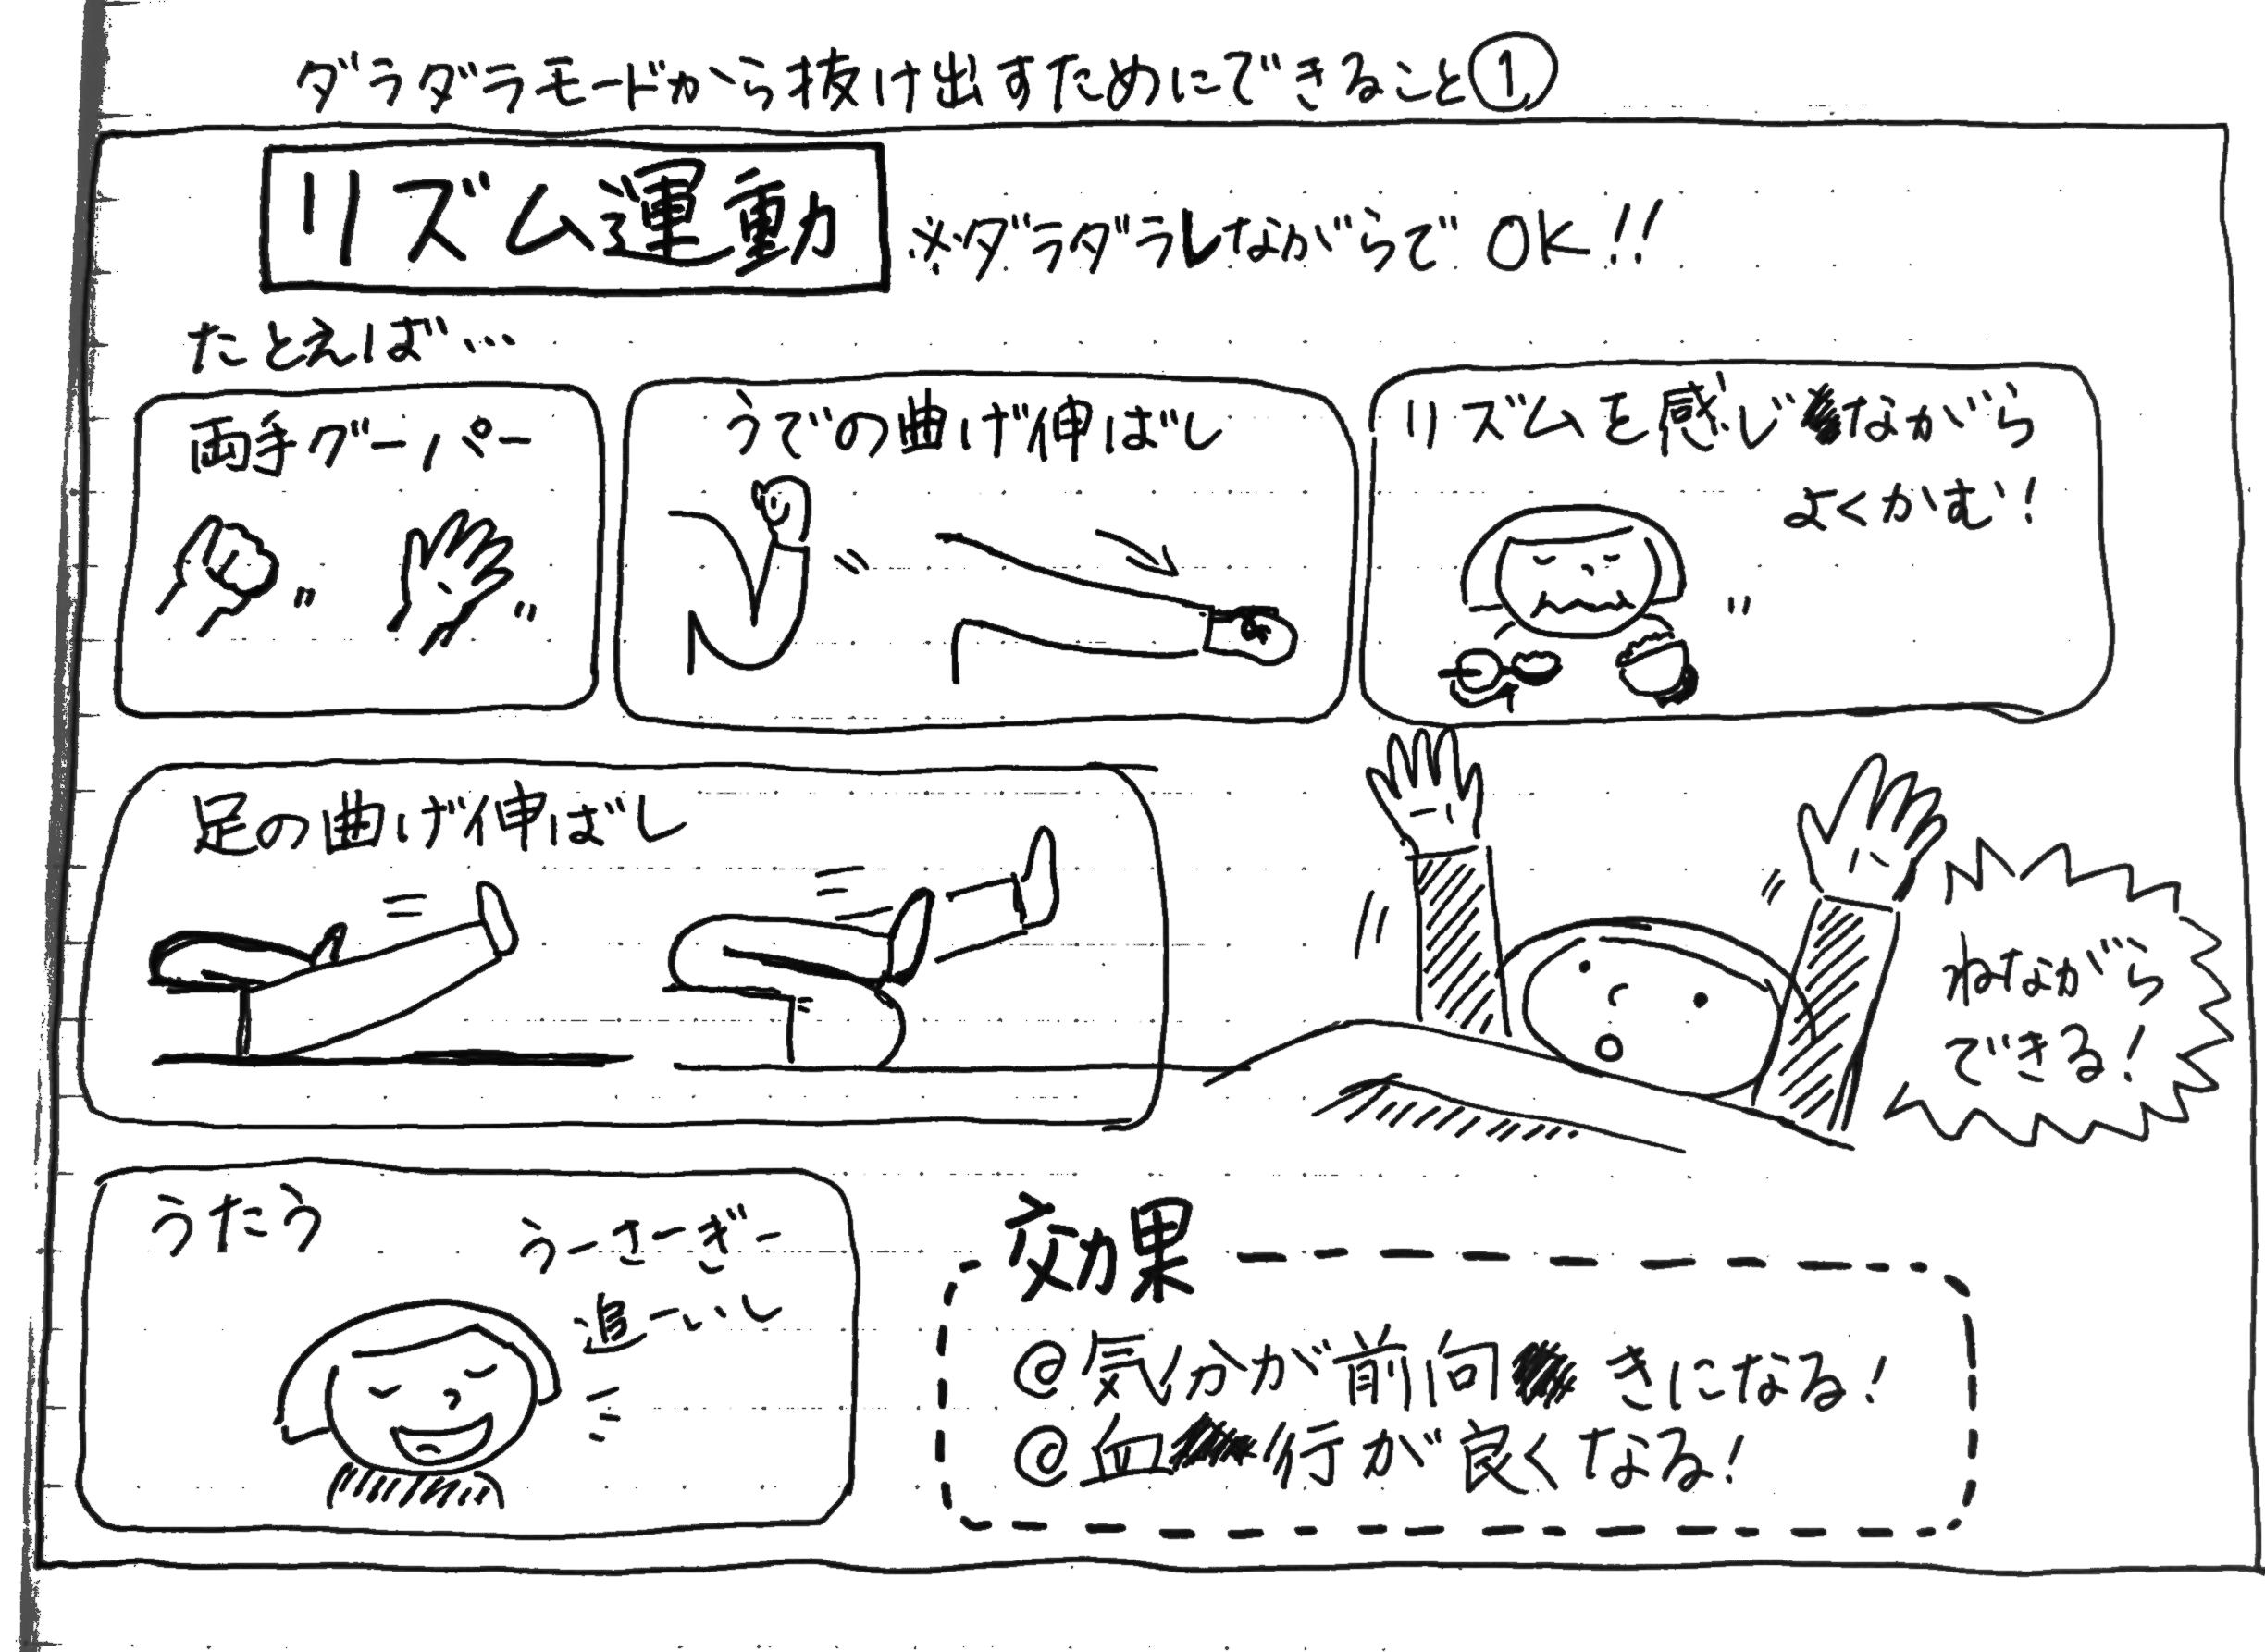 ダラダラモードから抜け出すためにできること①
リズム運動
※ダラダラしながらでOK!!
たとえば…
両手グーパー
うでの曲げ伸ばし
リズムを感じながら
よくかむ!
足の曲げ伸ばし
ねながら
できる!
うたう
うーさーぎー
追ーいし
効果
@気分が前向きになる!
@血行が良くなる!